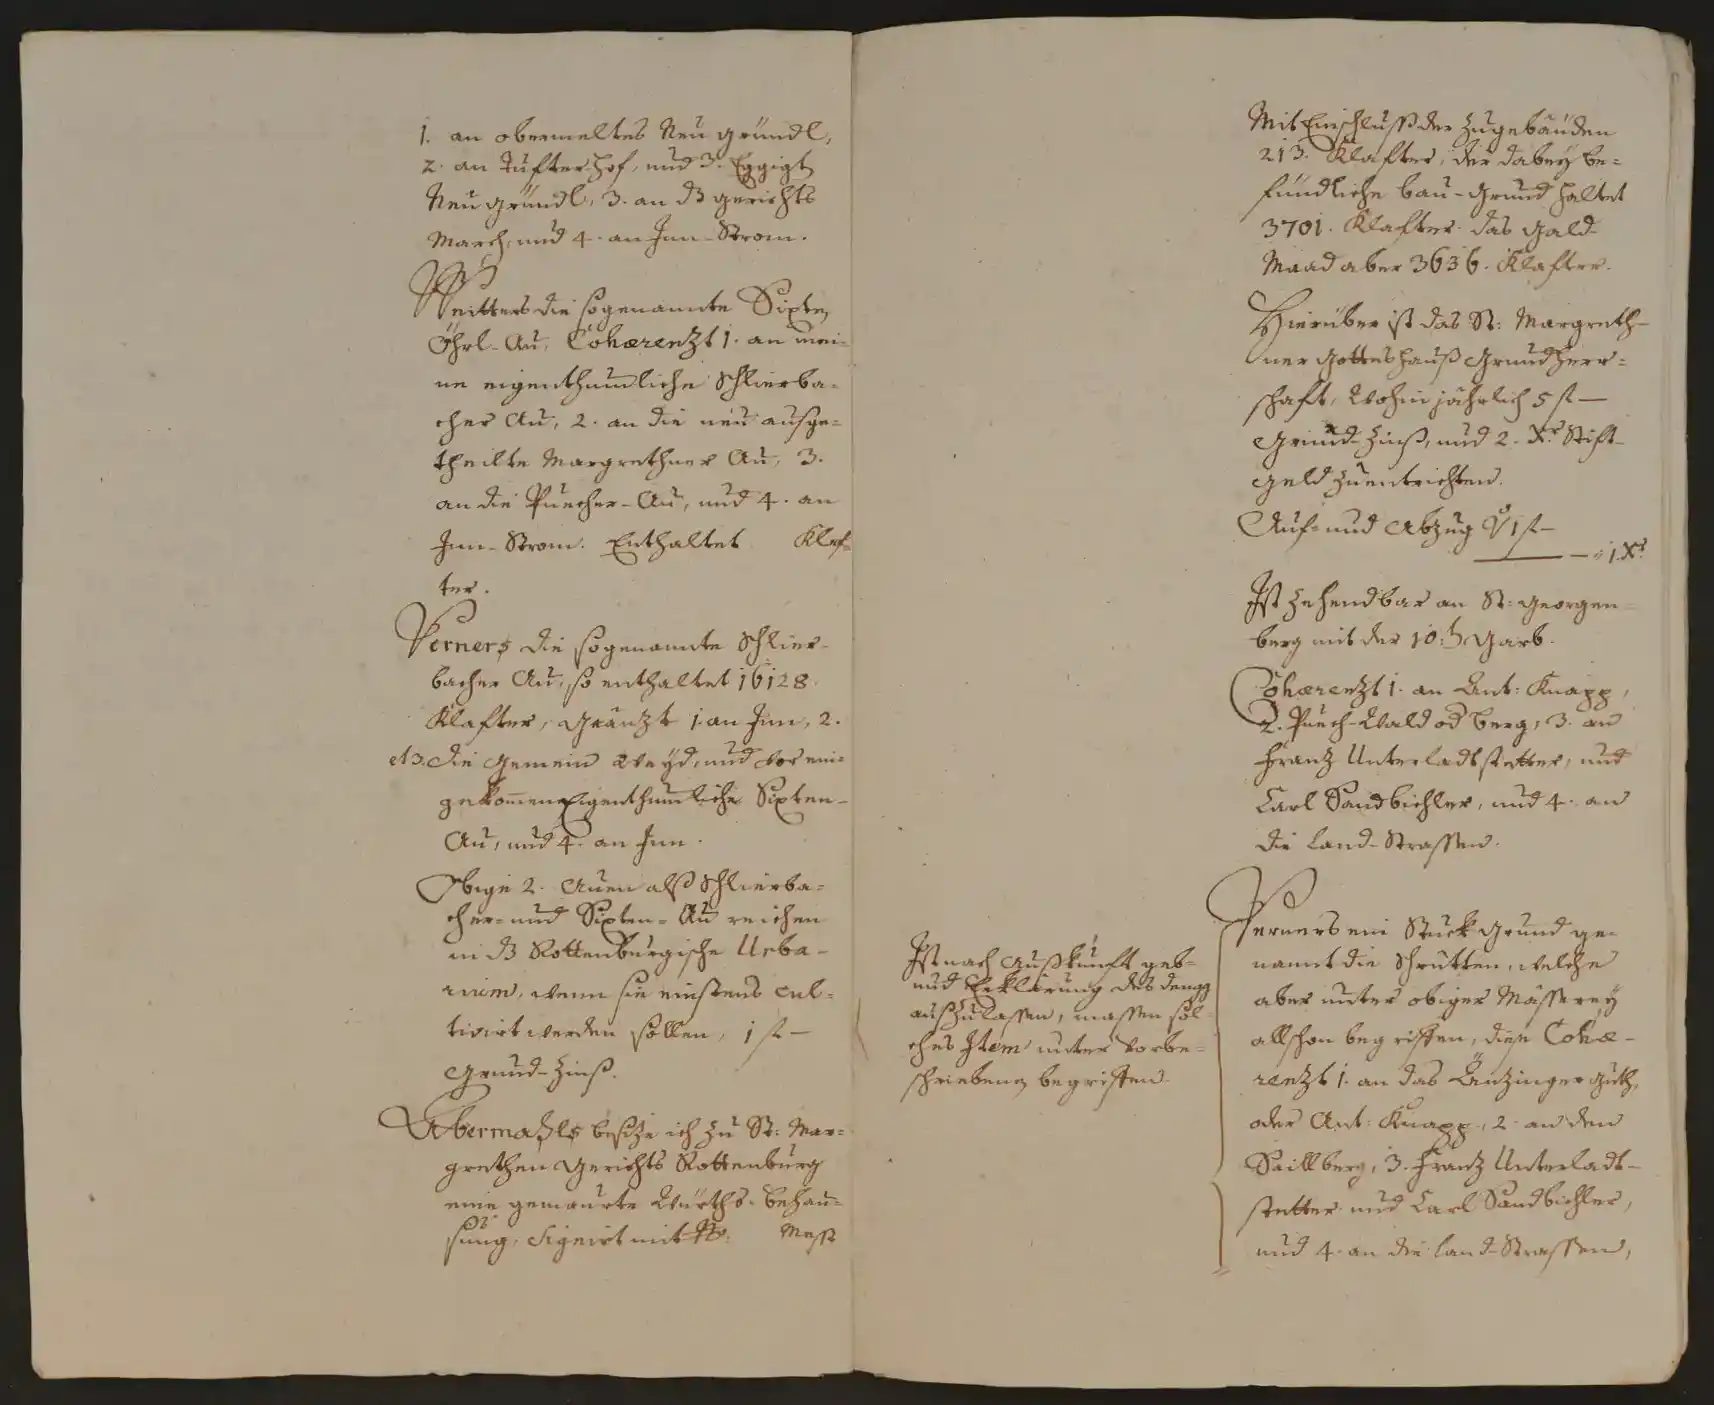 1. an obermeltes Neu gründl,
2. an Tufterhof, und 3. Eggigt
Neu gründl, 3. an dz gerichts
March, und 4. an Inn-Strom.
Weitters die sogenannte Sixten
Öhrl-Au, Cohærenzt 1. an mei-
ne eigenthumliche Schlierba-
cher Au, 2. an die neu ausge-
theilte Margrethner Au, 3.
an die Puecher-Au, und 4. an
Inn-Strom. Enthaltet Klaf-
ter.
Ferners die sogenannte Schlier-
bacher Au, so enthaltet 16128.
Klafter, Gränzt 1. an Inn, 2.
et 3. die Gemein Weyd, und vor ein-
gekomen Eigenthumliche Sixten-
Au, und 4. an Inn.
Obige 2. Auen alß Schlierba-
cher- und Sixten-Au reichen
in dz Rottenburgische Urba-
rium, wenn sie einstens cul-
tivirt werden sollen, 1 fl —
Grund-Zinß.
Abermahls besize ich zu St: Mar-
grethen Gerichts Rottenburg
eine gemaurte Würths-behau-
sung, signirt mit N: Messt
Mit Einschluss der Zugebäuden
213. Klafter, der dabey be-
fündliche bau-Grund haltet
3701. Klafter. das Gald-
Maad aber 3636. Klafter.
Hierüber ist das St: Margreth-
ner Gotteshauß Grundherr-
schaft, Wohin jährlich 5 fl —
Grund-Zinß, und 2. Xr Stift-
geld zuentrichten.
Auf- und Abzug 1 fl —
— 1. Xr
Ist Zehendbar an St: Georgen-
berg mit der 10:t Garb.
Cohærenzt 1. an Ant: Knapp,
2. Puech-Wald od berg, 3. an
Franz Unterladstetter, und
Carl Sandbichler, und 4. an
die Land-Strassen.
Ist nach Außkunft geb-
und Erklärung des
außzulassen, massen sol-
ches Item unter vorbe-
schriebenen begriffen.
Ferners ein Stuck Grund ge-
nannt die Schrutten, welche
aber unter obiger Masserey
allschon begriffen, diese Cohæ-
renzt 1. an das Länzinger Guth,
oder Ant: Knapp, 2. an den
Saillberg, 3. Franz Unterladt-
stetter und Carl Sandbichler,
und 4. an die Land-Strassen,